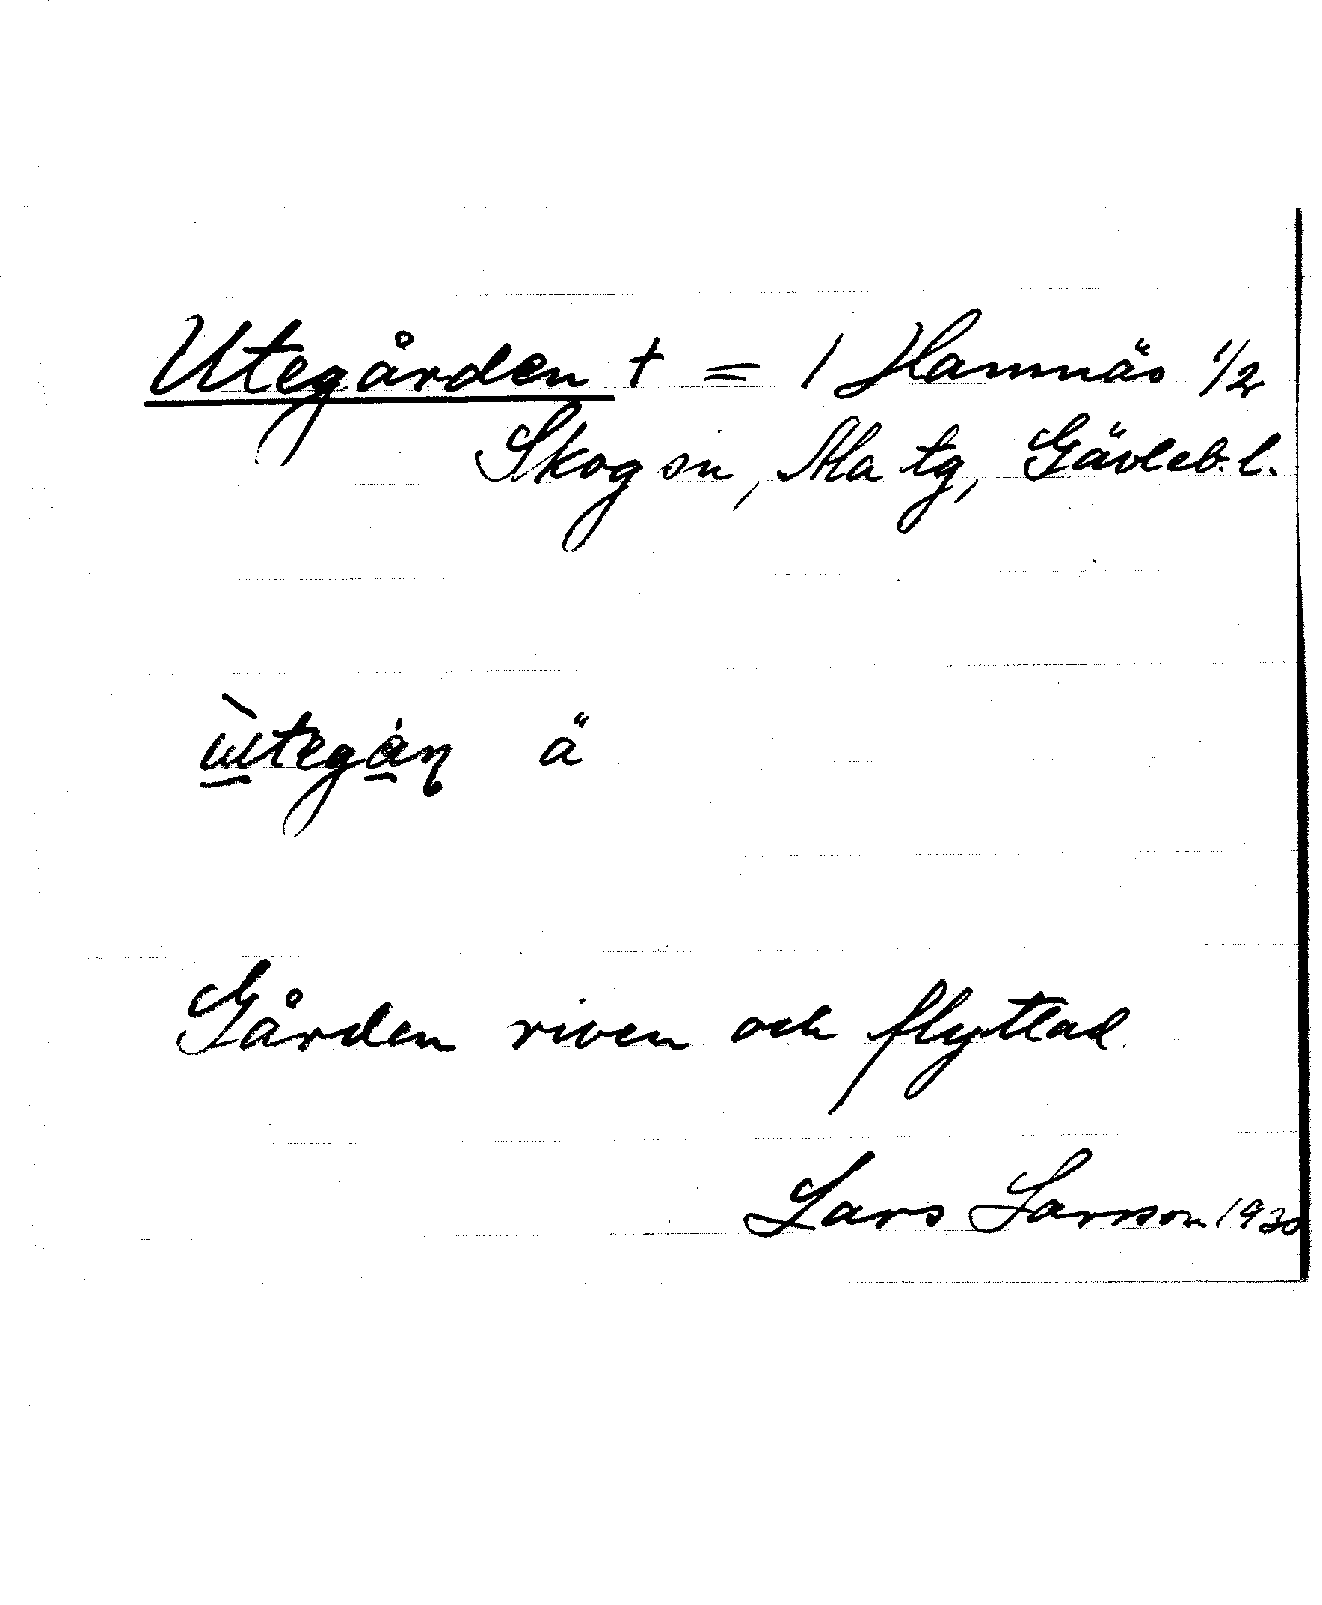 Utegården † = 1 Hamnäs 1/2
Skog sn, Ala tg, Gävleb. l.
ä
Gården riven och flyttad
Lars Larsson 1930